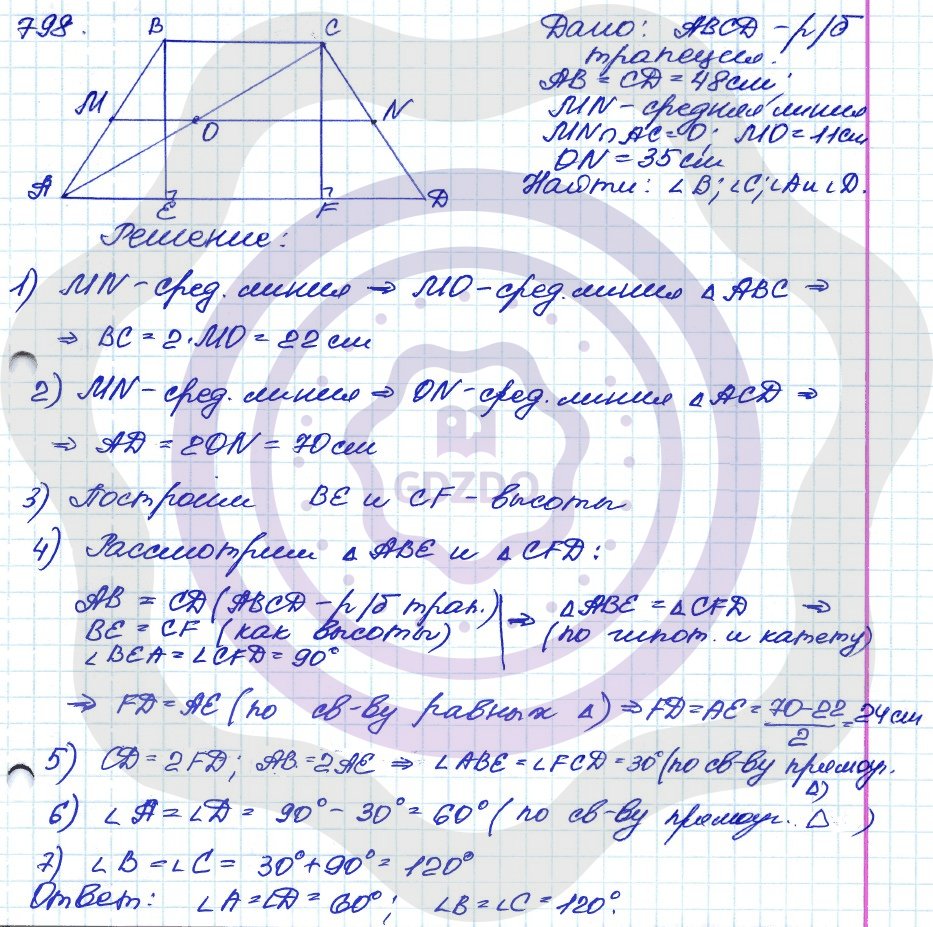 798.
B
C
M
O
N
A
E
F
D
Дано: ABCD – р/б
трапеция.
AB = CD = 48 см;
MN – средняя линия
MN ∩ AC = O; MO = 11 см
ON = 35 см
Найти: ∠B; ∠C; ∠A и ∠D.
Решение:
1) MN – сред. линия ⇒ MO – сред. линия △ABC ⇒
⇒ BC = 2·MO = 22 см
2) MN – сред. линия ⇒ ON – сред. линия △ACD ⇒
⇒ AD = 2ON = 70 см
GDZDO
3) Построим BE и CF – высоты
4) Рассмотрим △ABE и △CFD:
AB = CD (ABCD – р/б трап.)
BE = CF (как высоты)
∠BEA = ∠CFD = 90°
⇒ △ABE = △CFD ⇒
(по гипот. и катету)
⇒ FD = AE (по св-ву равных △) ⇒ FD = AE = (70-22)/2 = 24 см
5) CD = 2FD; AB = 2AE ⇒ ∠ABE = ∠FCD = 30° (по св-ву прямоуг.
△)
6) ∠A = ∠D = 90° – 30° = 60° (по св-ву прямоуг. △)
7) ∠B = ∠C = 30° + 90° = 120°
Ответ: ∠A = ∠D = 60°; ∠B = ∠C = 120°.